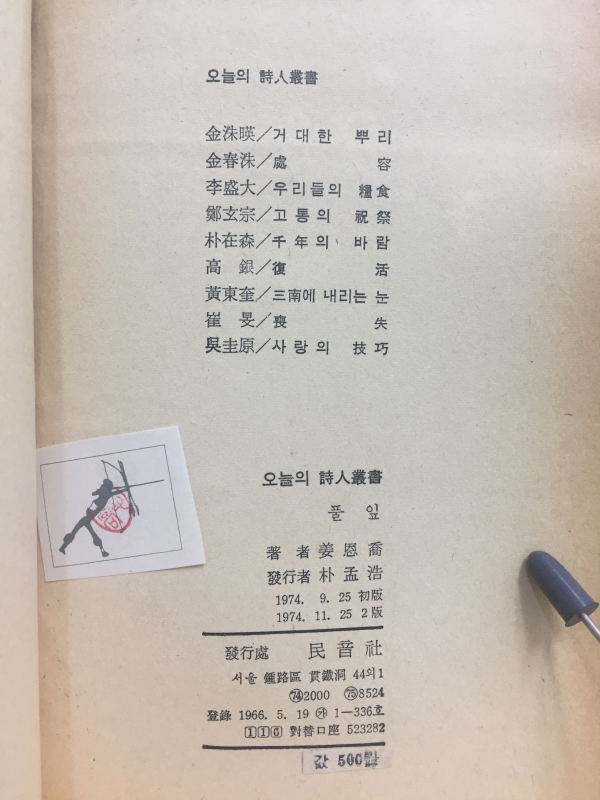 오늘의 詩人叢書
金洙暎/거대한 뿌리
金春洙/處 容
李盛大/우리들의 糧食
鄭玄宗/고통의 祝祭
朴在森/千年의 바람
高 銀/復 活
黃東奎/三南에 내리는 눈
崔 旻/喪 失
吳圭原/사랑의 技巧
오늘의 詩人叢書
풀 잎
著 者 姜恩喬
發行者 朴孟浩
1974. 9. 25 初版
1974. 11. 25 2版
發行處 民音社
서울 鍾路區 貫鐵洞 44의1
㉔2000 ㉕8524
登錄 1966. 5. 19 ㉮ 1—336호
110 對替口座 523282
값 500원